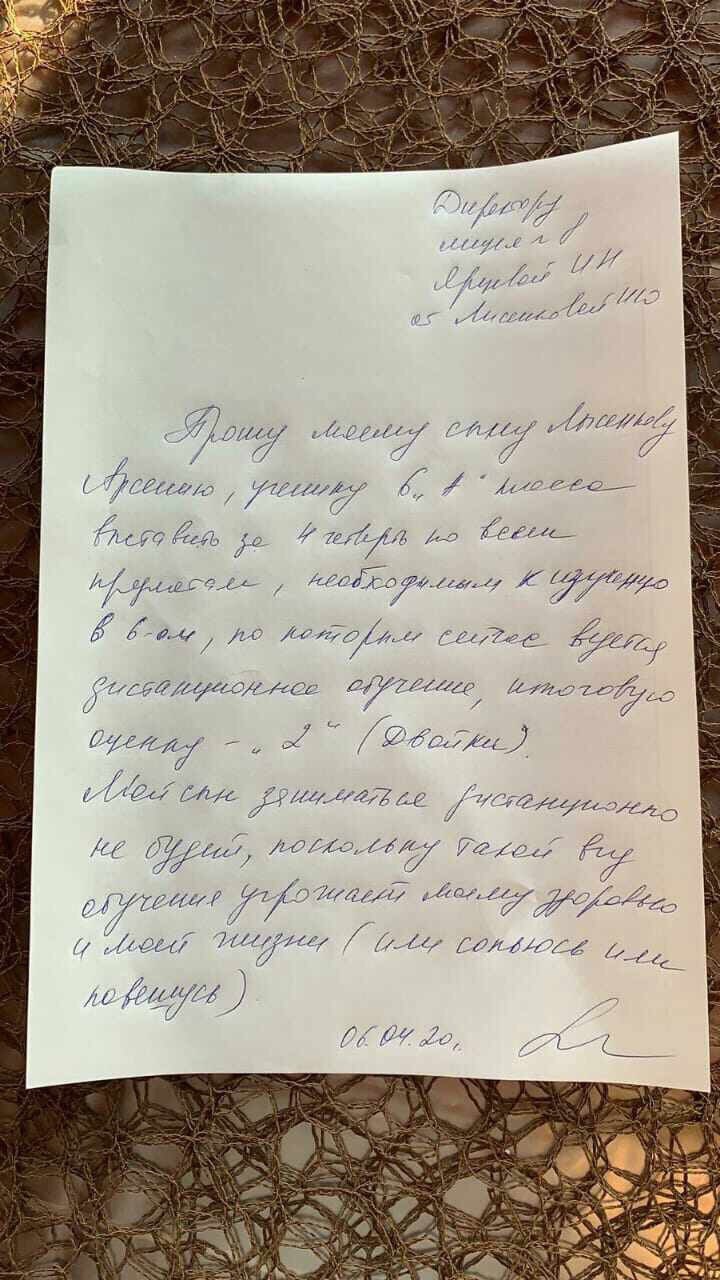 Директору
лицея № 8
Яруевой ИН
от Лисенковой НЮ
Прошу моему сыну Лысенкову
Арсению, ученику 6 „А" класса
выставить за 4 четверть по всем
предметам, необходимым к изучению
в 6-ом, по которым сейчас ведется
дистанционное обучение, итоговую
оценку - „2" (Двойки).
Мой сын заниматься дистанционно
не будет, поскольку такой вид
обучения угрожает моему здоровью
и моей жизни (или сопьюсь или
повешусь)
06.04.20г.